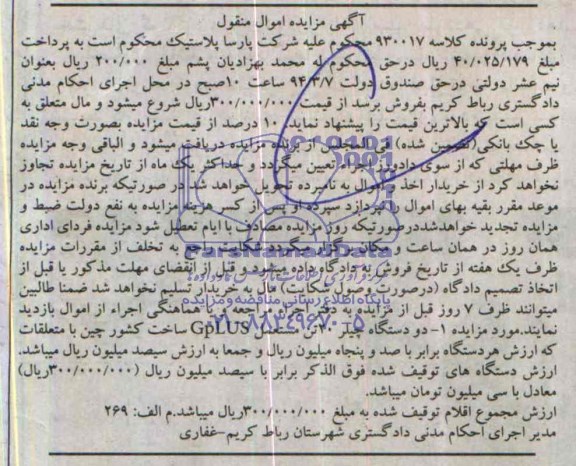 آگهی مزایده اموال منقول
بموجب پرونده کلاسه ۹۳۰۰۱۷ محکوم علیه شرکت پارسا پلاستیک محکوم است به پرداخت
مبلغ ۴۰/۰۲۵/۱۷۹ ریال درحق محکوم له محمد بهزادیان پشم مبلغ ۲۰۰/۰۰۰ ریال بعنوان
نیم عشر دولتی درحق صندوق دولت ۹۴/۳/۷ ساعت ۱۰صبح در محل اجرای احکام مدنی
دادگستری رباط کریم بفروش برسد از قیمت ۳۰۰/۰۰۰/۰۰۰ریال شروع میشود و مال متعلق به
کسی است که بالاترین قیمت را پیشنهاد نماید. ۱۰ درصد از قیمت مزایده بصورت وجه نقد
یا چک بانکی(تضمین شده) فی المجلس از برنده مزایده دریافت میشود و الباقی وجه مزایده
ظرف مهلتی که از سوی دادورز اجراء تعیین میگردد و حداکثر یک ماه از تاریخ مزایده تجاوز
نخواهد کرد از خریدار اخذ و اموال به نامبرده تحویل خواهد شد در صورتیکه برنده مزایده در
موعد مقرر بقیه بهای اموال را نپردازد سپرده او پس از کسر هزینه مزایده به نفع دولت ضبط و
مزایده تجدید خواهدشددرصورتیکه روز مزایده مصادف با ایام تعطیل شود مزایده فردای اداری
همان روز در همان ساعت و مکان برگزار میگردد شکایت راجع به تخلف از مقررات مزایده
ظرف یک هفته از تاریخ فروش به دادگاه داده میشود و قبل از انقضای مهلت مذکور یا قبل از
اتخاذ تصمیم دادگاه (درصورت وصول شکایت) مال به خریدار تسلیم نخواهد شد ضمنا طالبین
میتوانند ظرف ۷ روز قبل از مزایده به دفتر اجراء مراجعه و با هماهنگی اجراء از اموال بازدید
نمایند.مورد مزایده ۱- دو دستگاه چیلر تن GplUS ساخت کشور چین با متعلقات
که ارزش هردستگاه برابر با صد و پنجاه میلیون ریال و جمعا به ارزش سیصد میلیون ریال میباشد.
ارزش دستگاه های توقیف شده فوق الذکر برابر با سیصد میلیون ریال (۳۰۰/۰۰۰/۰۰۰ریال)
معادل با سی میلیون تومان میباشد.
ارزش مجموع اقلام توقیف شده به مبلغ ۳۰۰/۰۰۰/۰۰۰ریال میباشد.م الف: ۲۶۹
مدیر اجرای احکام مدنی دادگستری شهرستان رباط کریم-غفاری
ParsNamadData
پایگاه اطلاع رسانی مناقصه و مزایده
۰۲۱-۸۸۳۴۹۶۷۰-۵